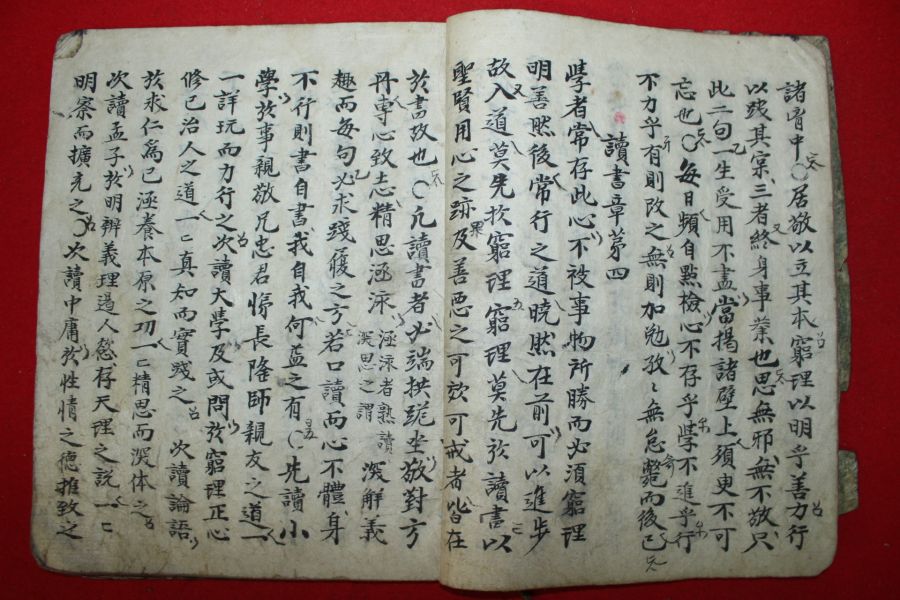 諸胷中○居敬以立其本窮理以明乎善力行
以踐其實三者終身事業也思無邪無不敬只
此二句一生受用不盡當揭諸壁上須臾不可
忘也○每日頻自點檢心不存乎學不進乎行
不力乎有則改之無則加勉孜〻無怠斃而後已
讀書章第四
學者常存此心不被事物所勝而必須窮理
明善然後常行之道曉然在前可以進步
故入道莫先於窮理窮理莫先於讀書以
聖賢用心之跡及善惡之可效可戒者皆在
於書故也○凡讀書者必端拱跪坐敬對方
冊專心致志精思涵泳 涵泳者熟讀深思之謂 深解義
趣而每句必求踐履之方若口讀而心不體身
不行則書自書我自我何益之有○先讀小
學於事親敬兄忠君悌長隆師親友之道一
一詳玩而力行之次讀大學及或問於窮理正心
修己治人之道一〻真知而實踐之 次讀論語
於求仁爲己涵養本原之功一〻精思而深體之
次讀孟子於明辨義理遏人慾存天理之說一〻
明察而擴充之○次讀中庸於性情之德推致之